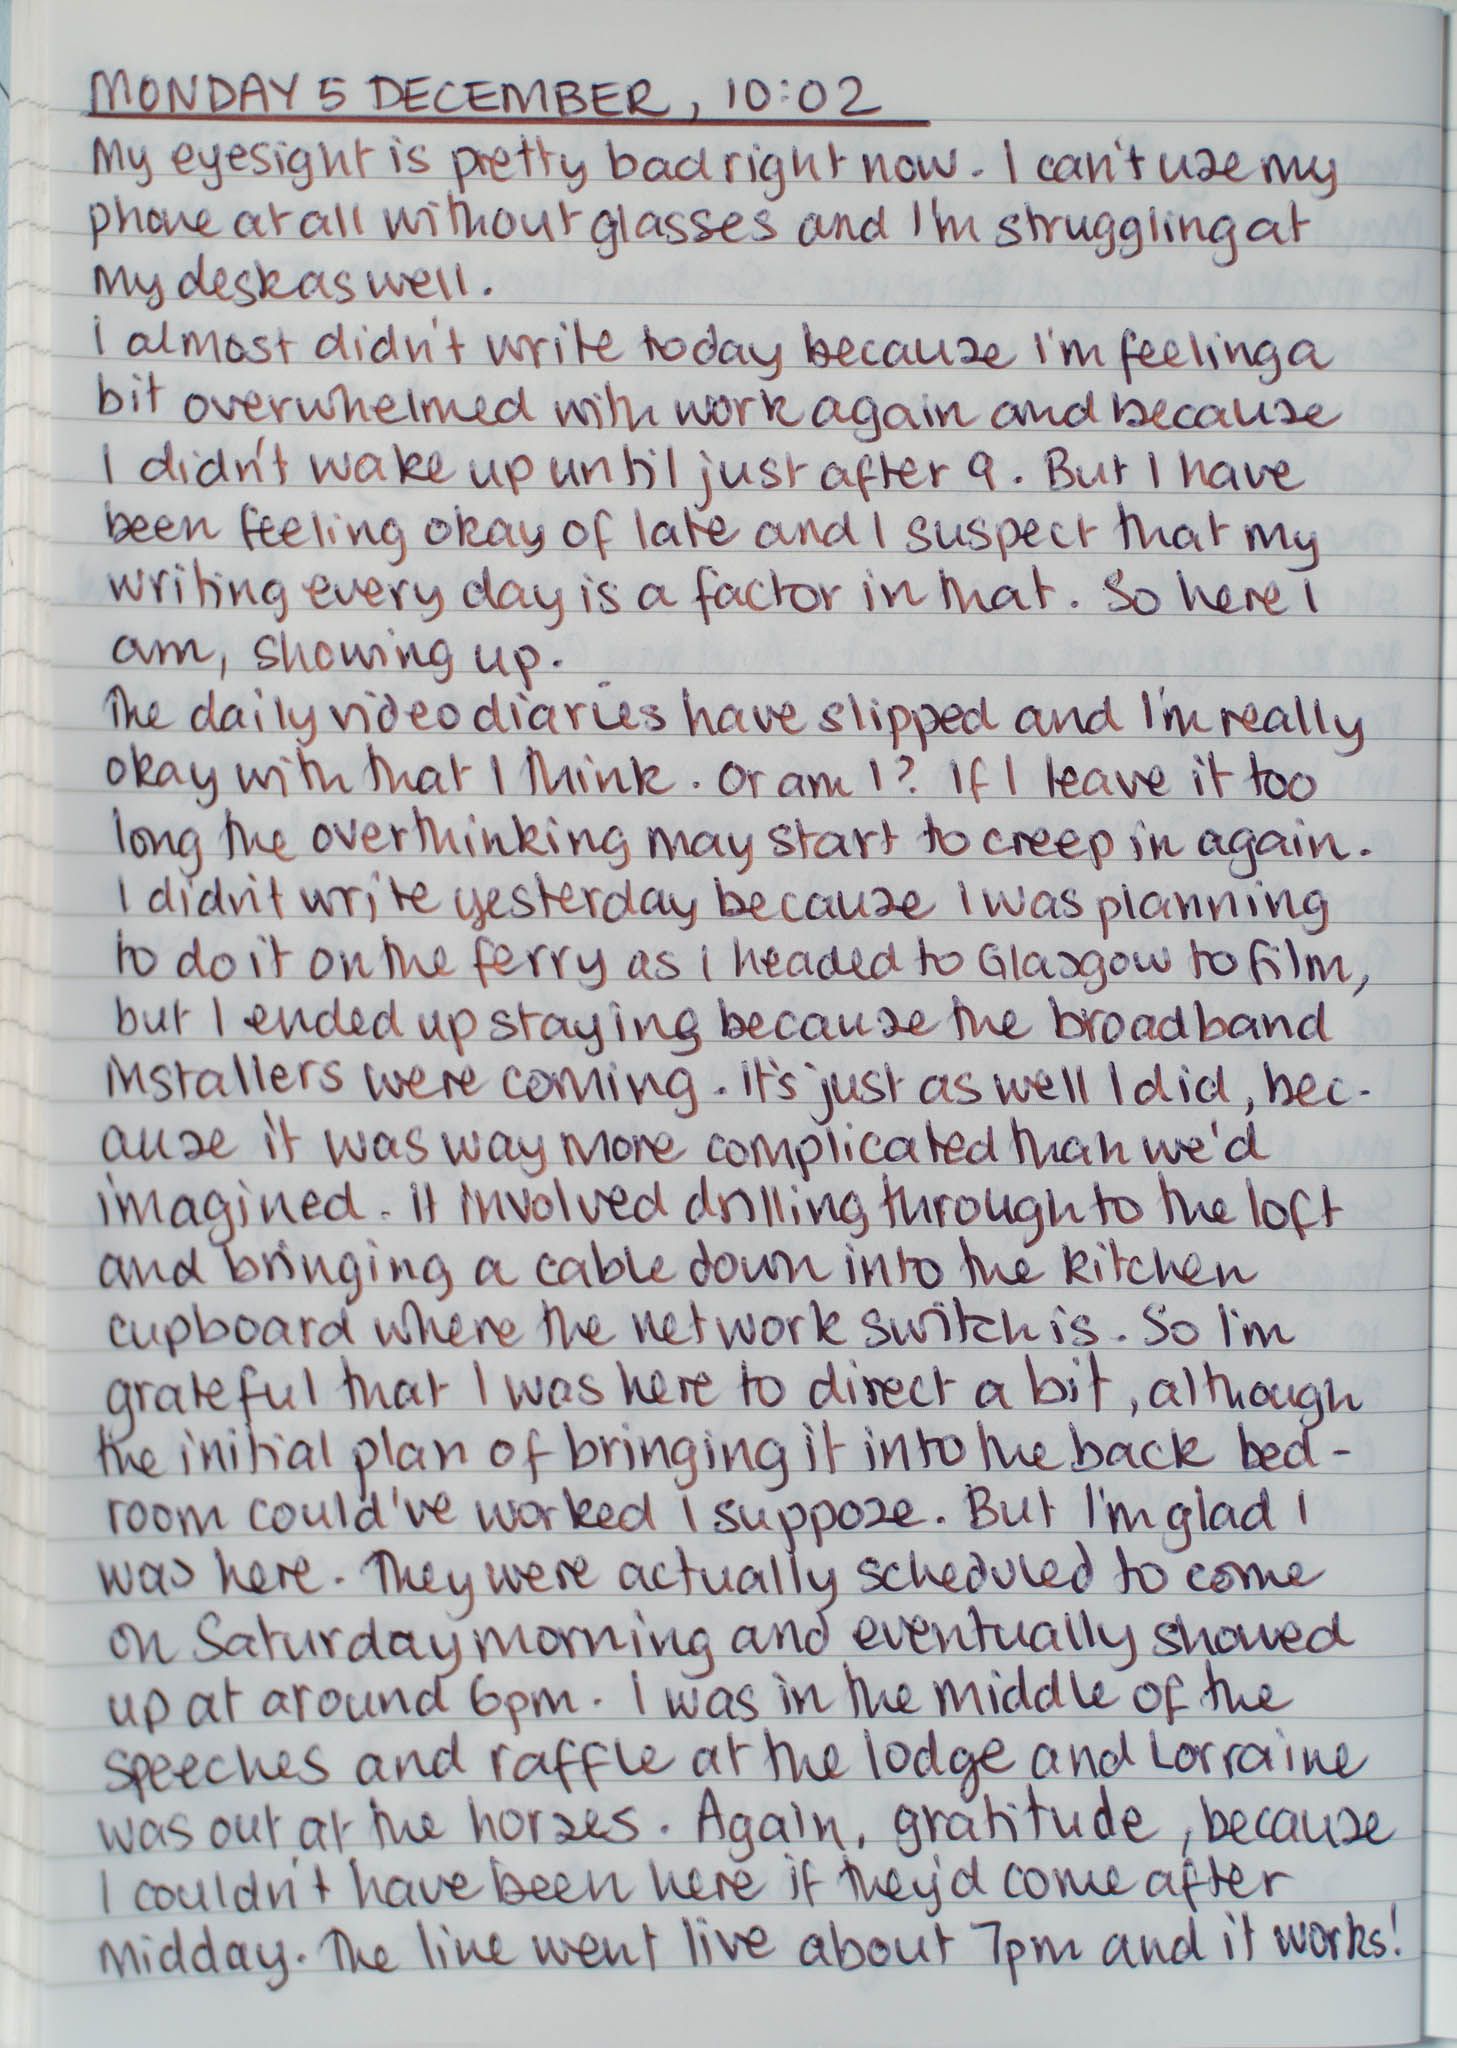 MONDAY 5 DECEMBER, 10:02
My eyesight is pretty bad right now. I can't use my
phone at all without glasses and I'm struggling at
my desk as well.
I almost didn't write today because I'm feeling a
bit overwhelmed with work again and because
I didn't wake up until just after 9. But I have
been feeling okay of late and I suspect that my
writing every day is a factor in that. So here I
am, showing up.
The daily video diaries have slipped and I'm really
okay with that I think. Or am I? If I leave it too
long the overthinking may start to creep in again.
I didn't write yesterday because I was planning
to do it on the ferry as I headed to Glasgow to film,
but I ended up staying because the broadband
installers were coming. It's just as well I did, bec-
ause it was way more complicated than we'd
imagined. It involved drilling through to the loft
and bringing a cable down into the kitchen
cupboard where the network switch is. So I'm
grateful that I was here to direct a bit, although
the initial plan of bringing it into the back bed-
room could've worked I suppose. But I'm glad I
was here. They were actually scheduled to come
on Saturday morning and eventually showed
up at around 6pm. I was in the middle of the
speeches and raffle at the lodge and Lorraine
was out at the horses. Again, gratitude, because
I couldn't have been here if they'd come after
midday. The line went live about 7pm and it works!